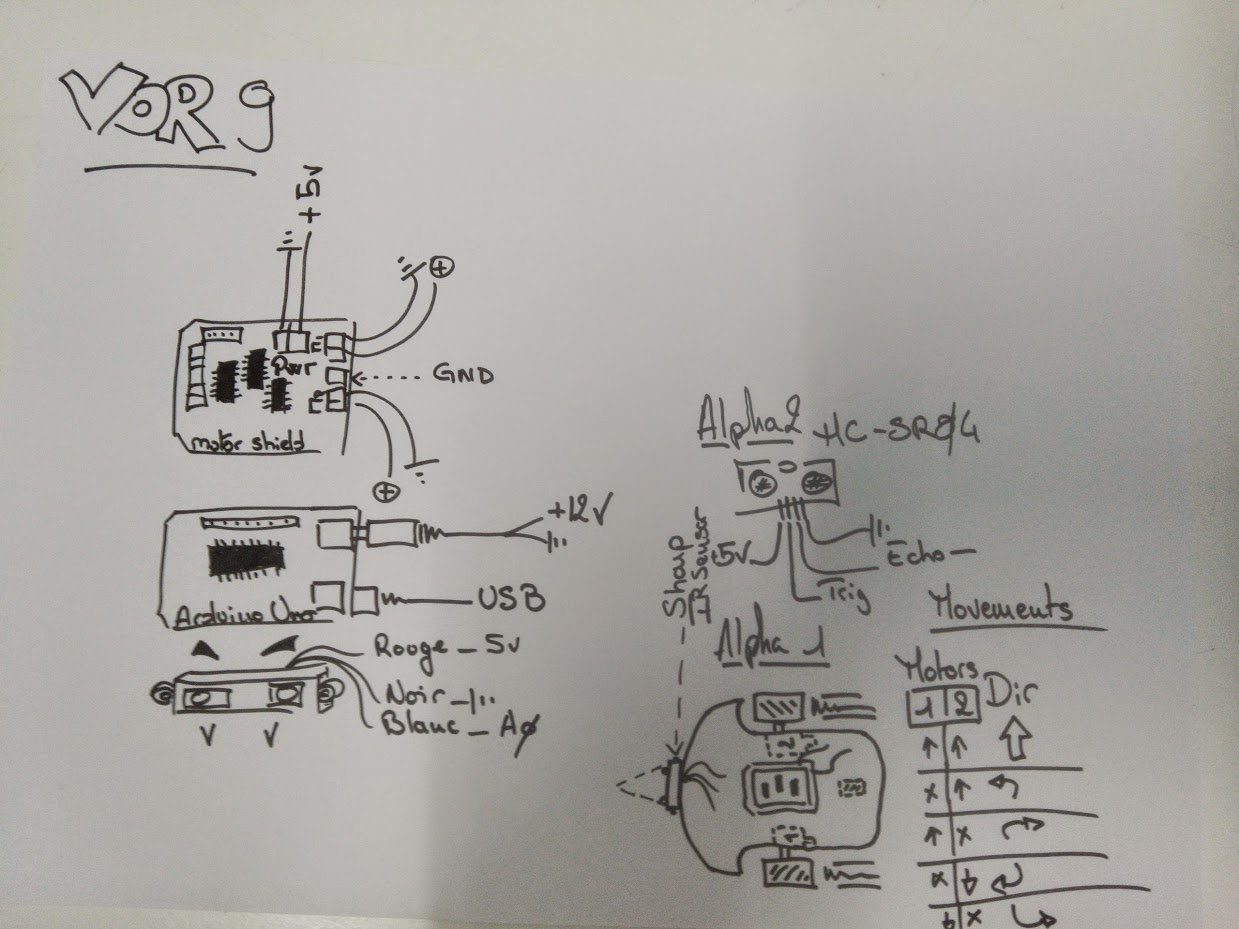 VOR 9
+5v
+
Pwr
GND
motor shield
+
+12V
USB
Arduino Uno
Rouge - 5v
Noir -
Blanc - AØ
Alpha2 HC-SRØ4
5V
Echo
Trig
Sharp
IR Sensor
Alpha 1
2
1
Movements
Motors
1 2 Dir
↑ ↑ ⇧
x ↑
↑ x
x ↓
↓ x